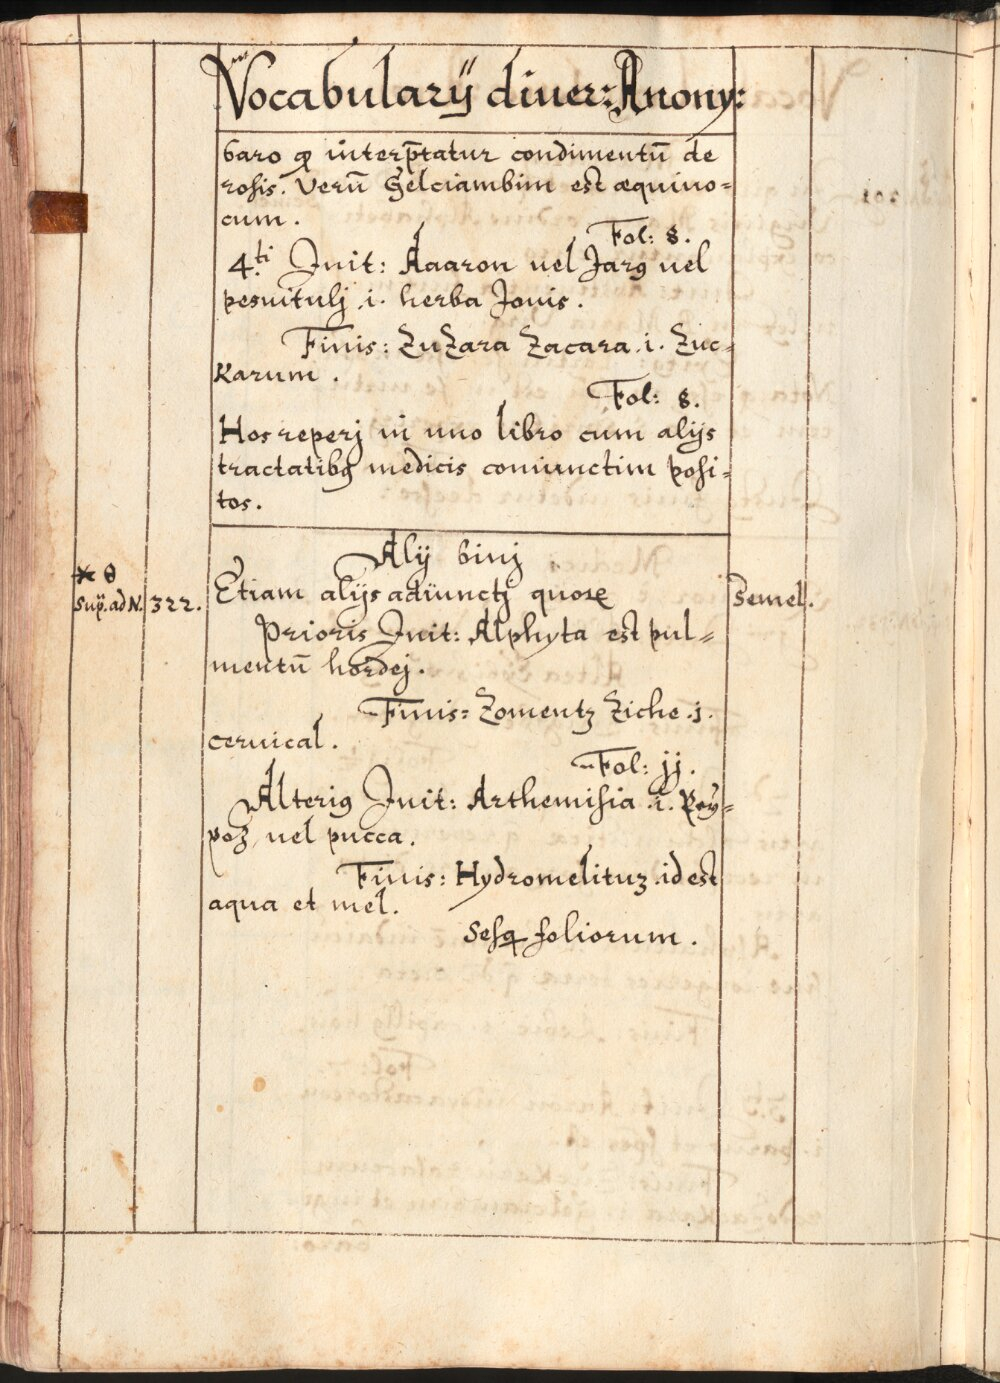 Vocabularÿ diuer: Anony:
baro qd interp̄tatur condimentū de
rosis. Verū Gelciambim est æquiuo=
cum.
Fol: 8.
4.ti Init: Aaaron uel Jarg uel
pesuituli .i. herba Jouis.
Finis: ZuZara Zacara .i. Zuc=
Karum.
Fol: 8.
Hos reperj in uno libro cum alijs
tractatibꝫ medicis coniunctim posi=
tos.
Alij binj
Etiam alijs adiunctj quoꝝ
* θ
Sup. ad N. 322.
Semel.
Prioris Init: Alphyta est pul=
mentū hordej.
Finis: Zomentz Ziche .j.
ceruical.
Fol: jj.
Alteriꝰ Init: Arthemisia .i. Pey=
poz, uel pucca.
Finis: Hydromelituz .id est
aqua et mel.
Sesq foliorum.